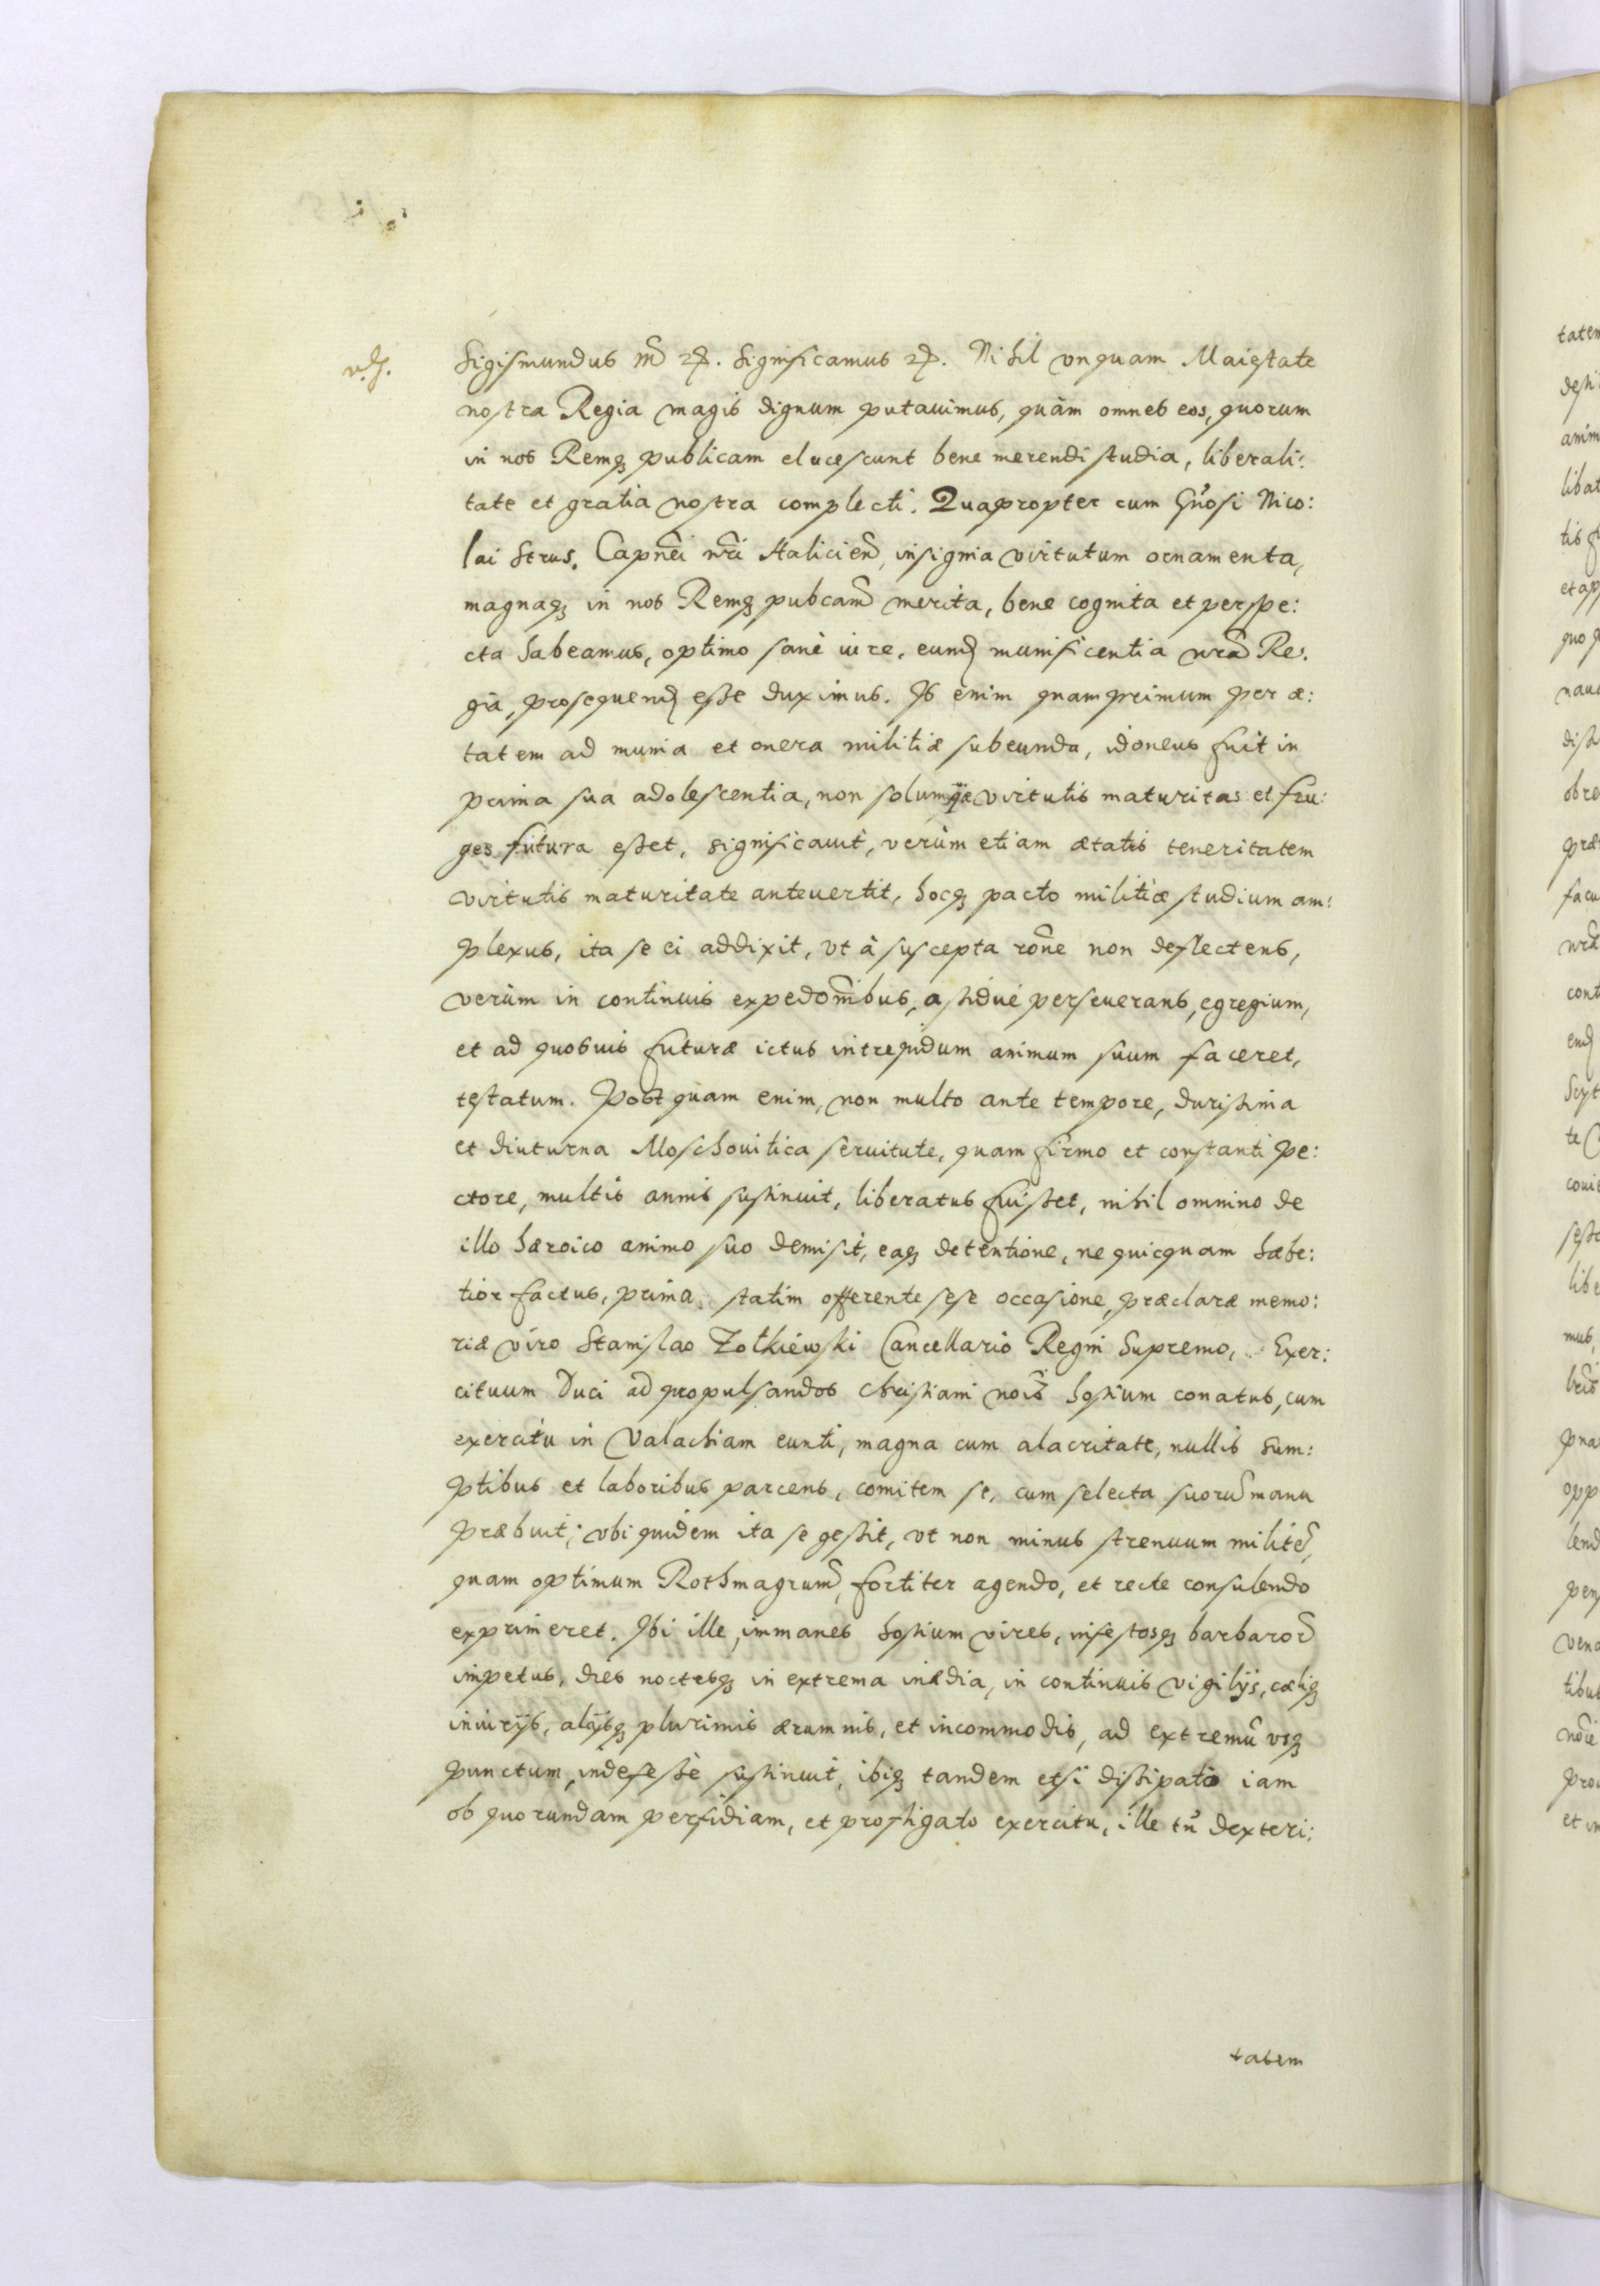 Sigismundus 3us etc. Significamus etc. Nihil vnquam Maiestate
nostra Regia magis dignum putauimus, quàm omnes eos, quorum
in nos Remq; publicam elucescunt bene merendi studia, liberali:
tate et gratia nostra complecti. Quapropter cum Gnosi Nico:
lai Strus, Capnei nri Halicien, insignia virtutum ornamenta,
magnaq; in nos Remq; pubcam merita, bene cognita et perspe:
cta habeamus, optimo sanè iure, eund munificentia nra Re:
gia, prosequend esse duximus. Is enim quamprimum per æ:
tatem ad munia et onera militiæ subeunda, idoneus fuit in
prima sua adolescentia, non solum quæ virtutis maturitas et fru:
ges futura esset, significauit, verùm etiam ætatis teneritatem
virtutis maturitate anteuertit, hocq; pacto militiæ studium am:
plexus, ita se ei addixit, vt à suscepta rone non deflectens,
verùm in continuis expedonibus, assiduè perseuerans, egregium,
et ad quosuis futuræ ictus intrepidum animum suum faceret,
testatum. Postquam enim, non multo ante tempore, durissima
et diuturna Moschouitica seruitute, quam firmo et constanti pe:
ctore, multis annis sustinuit, liberatus fuisset, nihil omnino de
illo hæroico animo suo demisit, eaq; detentione, ne quicquam hæbe:
tior factus, prima statim offerente sese occasione, præclaræ memo:
riæ viro Stanislao Zołkiewski Cancellario Regni Supremo, Exer:
cituum Duci ad propulsandos christiani nois hostium conatus, cum
exercitu in Valachiam eunti, magna cum alacritate, nullis sum:
ptibus et laboribus parcens, comitem se, cum selecta suorum manu
præbuit; vbi quidem ita se gessit, vt non minus strenuum milite,
quam optimum Rothmagrum, fortiter agendo, et recte consulendo
exprimeret. Ibi ille, immanes hostium vires, infestosq; barbaror
impetus, dies noctesq; in extrema inædia, in continuis vigilijs, cæliq;
iniurijs, alijsq; plurimis ærumnis, et incommodis, ad extremu vsq;
punctum, indefessè sustinuit, ibiq; tandem etsi dissipato iam
ob quorundam perfidiam, et profligato exercitu, ille tn dexteri:
tatem